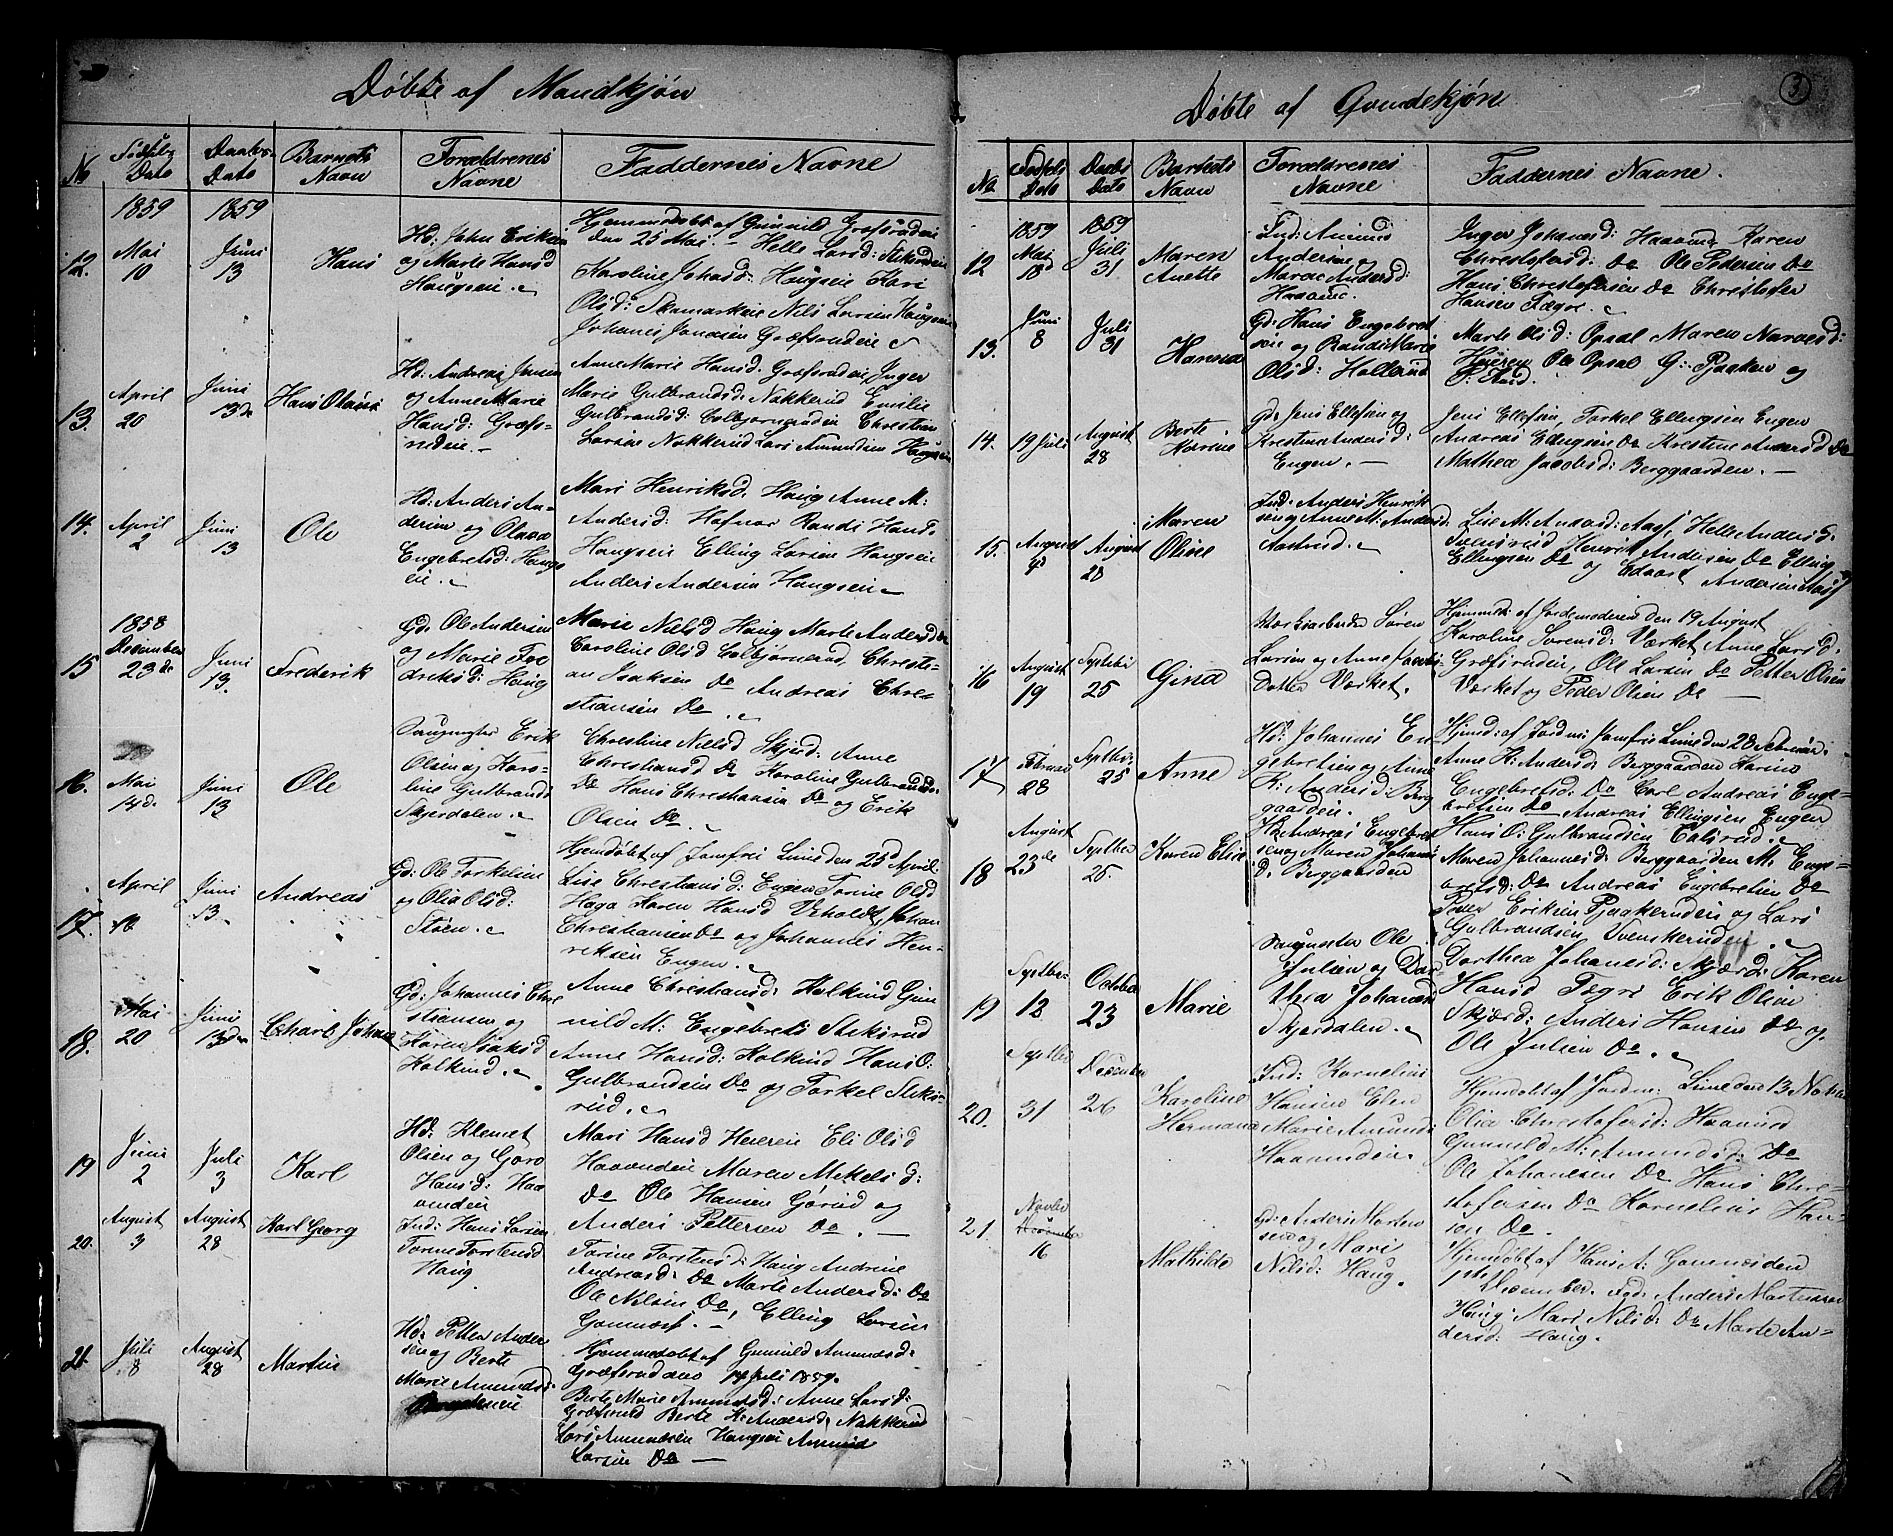 Døbte af Mandkjøn
No
Fødsels Dato
Daabs- Dato
Barnets Navn
Forældrenes Navne
Faddernes Navne
1859
1859
12.
Mai 10
Juni 13
Hans
Hd: John Eriksen
og Marte Hansd
Haugseie.
Hjemmedøbt af Gunnild Græfsrudeie
den 25 Mai. Helle Larsd:
Karoline Johasd: Haugseie Kari
Olsd: Nils Larsen Haugseie
Johanes Jonasen Græfsrudeie
13.
April 20
Juni 13de
Hans Olaus
Hd: Andreas Jensen
og Anne Marie
Hansd: Græfs-
rudeie.
Anne Marie Hansd: Græfsrudeie Inger
Marie Gulbrandsd: Nakkerud Emilie
Gulbrandsd: Christian
Larsen Nakkerud Lars Amundsen Haugseie
14.
April 2
Juni 13
Ole
Hd: Anders An-
dersen og Olava
Engebretsd: Haugs-
eie.
Mari Henriksd. Haug Anne M:
Andersd: Hafnor Randi Hansd.
Haugseie Elling Larsen Haugseie
Anders Andersen Haugseie
15
1858
December 23de
Juni 13.
Frederik
Gd. Ole Andersen
og Marie Fre
driksd: Haug
Marie Nielsd Haug Marte Andersd Do
Caroline Olsd Colbjørnsrud, Christi-
an Isaksen Do Andreas Chri-
stiansen Do.
16.
Mai 14de
Juni 13
Ole
Saugmester Erik
Olsen og Karo-
line Gulbrandsd
Skjerdalen.
Christine Nielsd Skjerd: Anne
Christiansd Do Karoline Gulbrandsd:
Do Hans Christiansen Do og Erik
Olsen Do.
17.
April 18
Juni 13.
Andreas
Gd: Ole Torkelsen
og Olia Olsd:
Støen.
Hjemdøbt af Jomfru Lund den 25 April
Lise Christiansd: Engen Torine Olsd
Haga Karen Hansd Johan
Christiansen Do og Johannes Hen-
riksen Engen.
18.
Mai 20
Juni 13de
Charl Johan
Gd: Johannes Chri
stiansen og
Karen Isaksd
Holkind.
Anne Christiansd: Holkind Gun
nild M: Engebretsd Stiksrud
Anne Hansd: Holkind Hans O:
Gulbrandsen Do og Torkel Stiks-
rud.
19
Juni 2
Juli 3
Karl
Hd: Klemet
Olsen og Goro
Hansd: Haa
vnden
Mari Hansd Hereeie Eli Olsd
Haavndeie Maren Mikelsd:
Do Ole Hansen Gørud og
Anders Pettersen Do.
20.
August 3
August 28
Karl Georg
Ind: Hans Larsen
Torine Torstensd
Haug
Torine Torstensd: Haug Andrine
Andreasd: Do Marte Andersd: Do
Ole Nilsen Do, Elling Larsen
Gomnæs.
21.
Juli 8
August 28
Martin
Hd: Petter Ander
sen og Berte
Marie Amundsd:
Hjemmedøbt af Gunnild Amundsd:
Græfsrud den 14 Juli 1859.
Berte Marie Amundsd: Anne Larsd:
Græfsrud Berte K: Andersd: Nakkerud
Lars Amundsen Haugseie Amund
Larsen Do
Døbte af Qvindekjøn
3.
No
Fødsels Dato
Daabs Dato
Barnets Navn
Forældrenes Navne
Faddernes Navne.
1859
1859
12
Mai 18
Juli 31
Maren Anette
Ind: Amund
Andersen og
Maren Andersd:
Haavnd.
Inger Johansd: Haavnd Karen
Christofersd: Do Ole Pedersen Do
Hans Christofersen Do Christofer
Hansen Fægri.
13.
Juni 8
Juli 31
Hanna
Gd: Hans Engebret
sen og Randi Marie
Olsd: Hollerud
Marte Olsd: Opsal Maren Narvesd:
Ole Opsal G: Pjaaken og
14.
19 Juli
August 28
Berte Karine
Gd: Jens Ellefsen og
Kristine Andersd:
Engen.
Jens Ellefsen, Torkel Ellingsen Engen
Andreas Ellingsen Do Kristine Andersd Do
Mathea Jacobsd: Berggaarden.
15.
August 9
August 28
Maren Oline
Ind: Anders Henrik
sen og Anne M: Andersd:
Aasterud.
Lise M: Andersd: Aass, Helle Andersd.
Svensrud Henrik Andersen Do Elling
Ellingsen Do og Edvart Andersen Aass
16
August 19
Septbr 25
Gina
Værksarbeider Søren
Larsen og Anne Jacobs
Datter Værket.
Hjemmd: af Jordemoderen den 19 August
Karoline Sørensd: Værket Anne Larsd.
Græfsrudeie, Ole Larsen Do Petter Olsen
Værket og Peder Olsen Do
17
Februar 28
Septbr: 25
Anne
Hd: Johannes En
gebretsen og Anne
K: Andersd: Berg
gaarden.
Hjmd: af Jordm: Jomfru Lund den 28 Februar.
Anne K: Andersd: Berggaarden Karine
Engebretsd: Do Carl Andreas Enge-
bretsen Do Andreas Ellingsen Engen
Hans O: Gulbrandsen
18
August 23de
Septbr 25.
Karen Elise
Hd: Andreas Engebret
sen og Maren Johans
d. Berggaarden
Maren Johannesd: Berggaarden M: Enge-
bretsd: Do Andreas Engebretsen Do
Peder Eriksen Pjaakerudeie og Lars
Gulbrandsen Svenskerudeie.
19
Septbr. 12
October 23
Marie
Saugmester Ole
Julsen og Dor
thea Johansd:
Skjerdalen.
Dorthea Johanesd: Skjærd: Karen
Hansd Fægri Erik Olsen
Skjærd: Anders Hansen Do og
Ole Julsen Do.
20.
Septbr 31
December 26
Karoline Hermana
Ind: Kornelius
Hansen Elen
Marie Amunds
Haavnden.
Hjemdøbt af Jordm: Lund den 13 Novbr
Olia Christofersd: Haavnd
Gunnild M: Amundsd: Do
Ole Johansen Do Hans Chri-
stofersen Do Kornelius Han-
sen Do.
21.
Novbr 16
Mathilde
Gd: Anders Morten
sen og Mari
Nilsd: Haug.
Hjemdøbt af Hans A: Gomnæsiden
1ste December. Fgd. Anders Mortensen
Haug. Mari Nilsd: Do Marte An-
dersd: Haug.